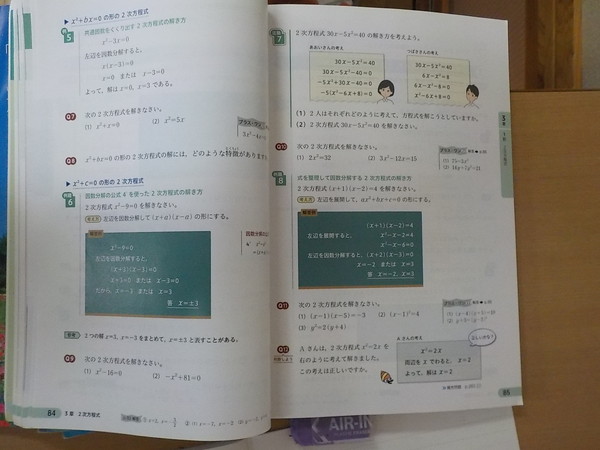 x²+bx=0 の形の 2 次方程式
例
5
共通因数をくくり出す 2 次方程式の解き方
x²-3x=0
左辺を因数分解すると，
x(x-3)=0
x=0 または x-3=0
よって，解は x=0，x=3 である。
Q7
次の 2 次方程式を解きなさい。
(1) x²+x=0
(2) x²=5x
プラス・ワン
Q8
x²+bx=0 の形の 2 次方程式の解には，どのような特徴がありま
x²+c=0 の形の 2 次方程式
例題
6
因数分解の公式 4 を使った 2 次方程式の解き方
2 次方程式 x²-9=0 を解きなさい。
考え方 左辺を因数分解して (x+a)(x-a) の形にする。
x²-9=0
左辺を因数分解すると，
(x+3)(x-3)=0
x+3=0 または x-3=0
だから，x=-3 または x=3
答 x=±3
因数分解の
2 つの解 x=3，x=-3 をまとめて，x=±3 と表すことがある。
Q9
次の 2 次方程式を解きなさい。
(1) x²-16=0
(2) -x²+81=0
84 3 章 2 次方程式
7
2 次方程式 30x-5x²=40 の解き方を考えよう。
あおいさんの考え
30x-5x²=40
30x-5x²-40=0
-5x²+30x-40=0
-5(x²-6x+8)=0
つばささんの考え
30x-5x²=40
6x-x²=8
6x-x²-8=0
x²-6x+8=0
(1) 2 人はそれぞれどのように考えて，方程式を解こうとしていますか。
(2) 2 次方程式 30x-5x²=40 を解きなさい。
Q10
次の 2 次方程式を解きなさい。
(1) 2x²=32
(2) 3x²-12x=15
プラス・ワン
例題
8
式を整理して因数分解する 2 次方程式の解き方
2 次方程式 (x+1)(x-2)=4 を解きなさい。
考え方 左辺を展開して，ax²+bx+c=0 の形にする。
(x+1)(x-2)=4
左辺を展開すると，
x²-x-2=4
x²-x-6=0
左辺を因数分解すると，(x+2)(x-3)=0
x=-2 または x=3
答 x=-2，x=3
Q11
次の 2 次方程式を解きなさい。
(1) (x-1)(x-5)=-3
(2) (x-1)²=4
(3) y²=2(y+4)
プラス・ワン
Q12
A さんは，2 次方程式 x²=2x を
右のように考えて解きました。
この考えは正しいですか。
A さんの考え
x²=2x
両辺を x でわると， x=2
よって，解は x=2
正しいかな？
85
3 章
AIR-IN